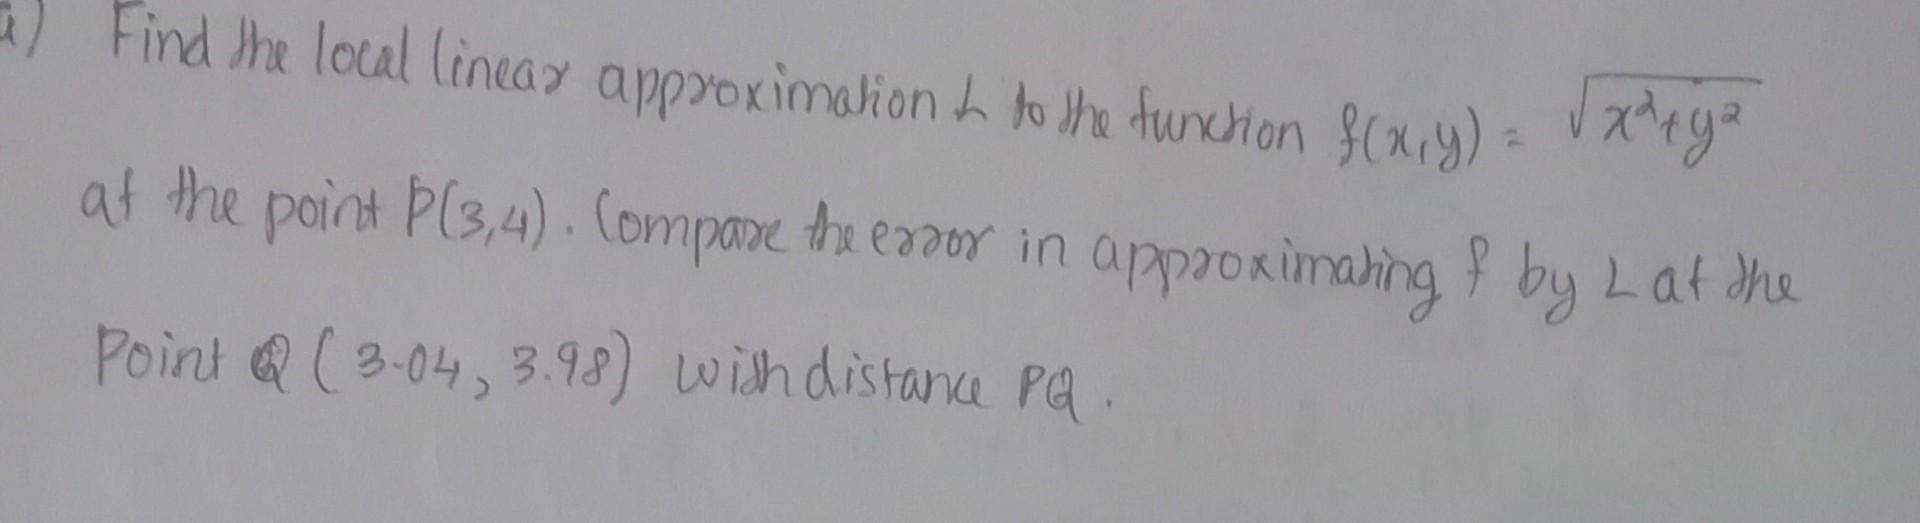 a) Find the local linear approximation L to the function f(x,y) = √x²+y²
at the point P(3,4). Compare the error in approximating f by L at the
Point Q (3.04, 3.98) with distance PQ.